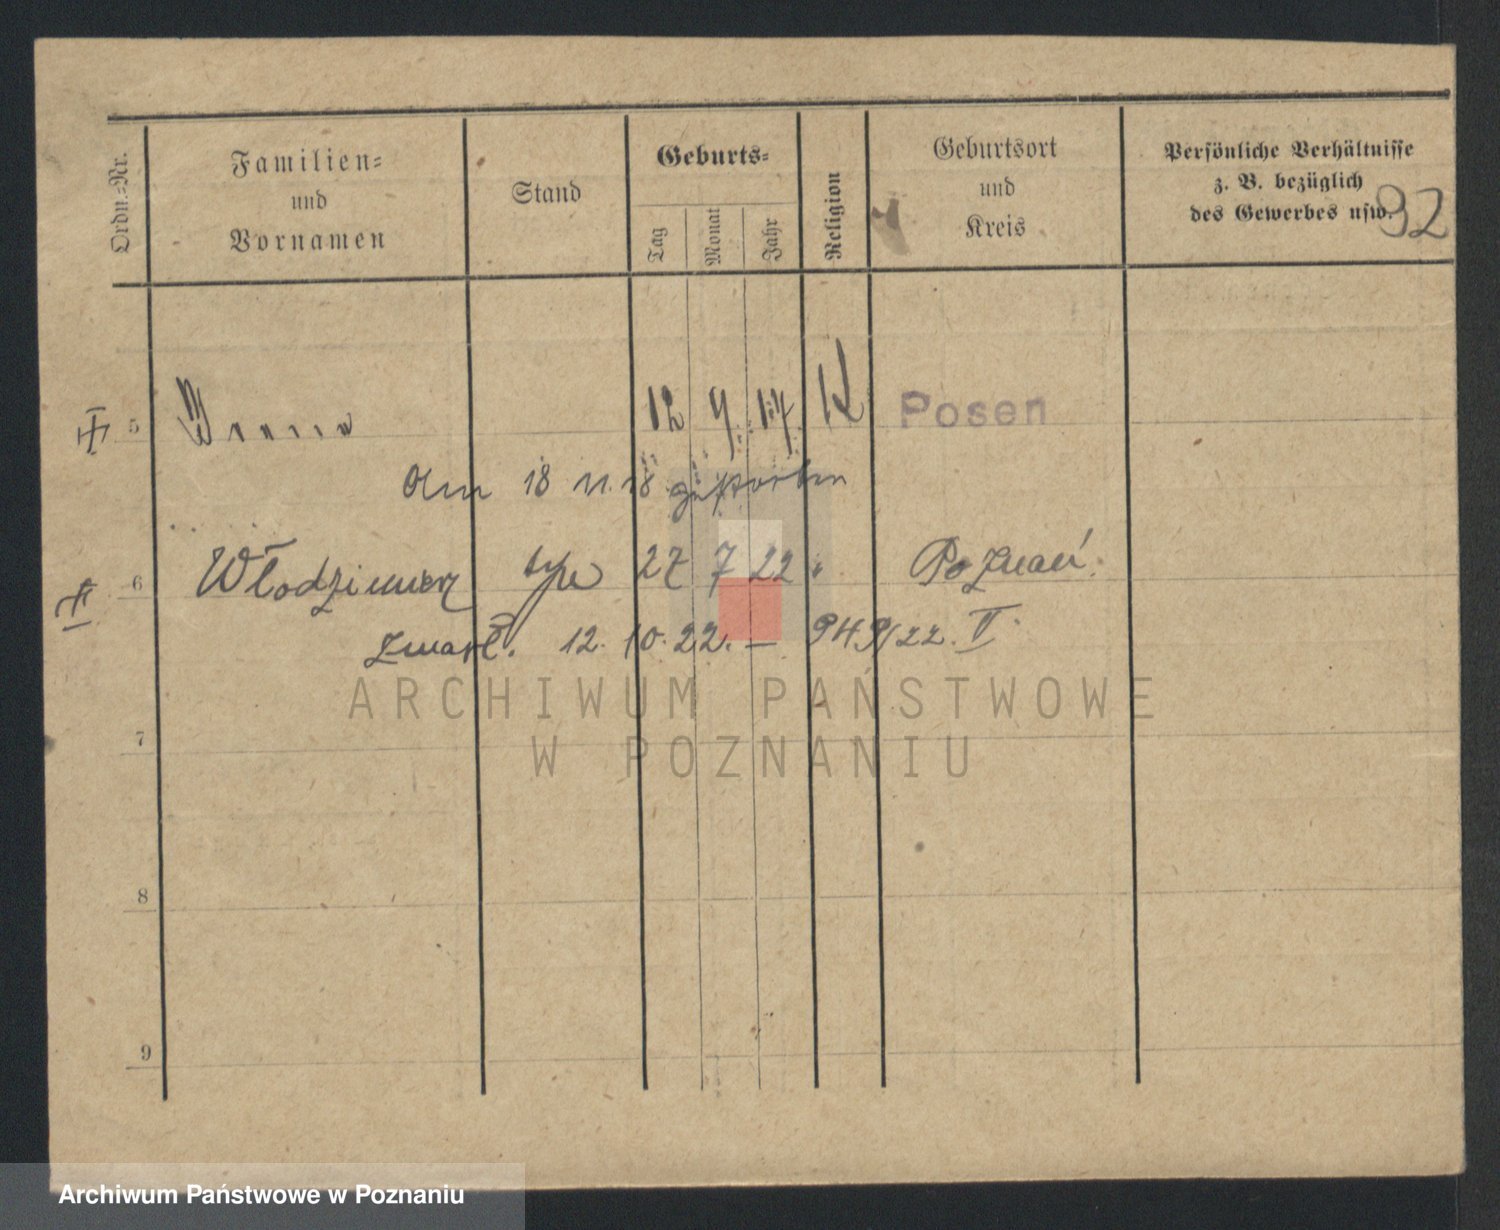 Ordn.-Nr.
Familien-
und
Vornamen
Stand
Geburts-
Tag
Monat
Jahr
Religion
Geburtsort
und
Kreis
Persönliche Verhältnisse
z. B. bezüglich
des Gewerbes usw.
92
5 12 9. 17. K Posen
Am 18 11. 18 gestorben
6 Włodzimierz syn 27 7 22 " Poznań.
zmarł. 12. 10. 22. — 949/22. II.
ARCHIWUM PAŃSTWOWE
W POZNANIU
7
8
9
Archiwum Państwowe w Poznaniu